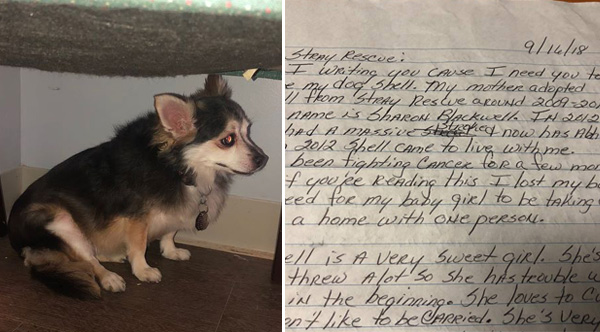 9/14/18
Stray Rescue:
I writing you cause I need you t
e my dog Shell. My mother adopted
ll from Stray Rescue around 2009-20
name is Sharon Blackwell. In 2012
had a massive now has
2012 Shell came to live with me.
been fighting cancer for a few mo
f you'ee reading this I lost my b
eed for my baby girl to be taking
a home with one person.
ell is a very sweet girl. She's
threw alot so she has trouble w
in the beginning. She loves to C
n't like to be carried. She's very